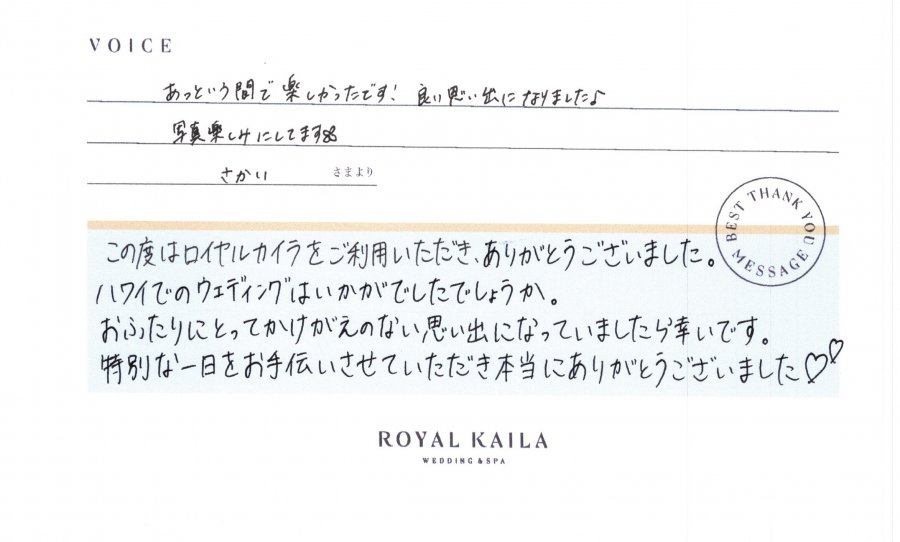 VOICE
あっという間で楽しかったです！良い思い出になりました♪
写真楽しみにしてます
さかい さまより
BEST THANK YOU MESSAGE
この度はロイヤルカイラをご利用いただき、ありがとうございました。
ハワイでのウェディングはいかがでしたでしょうか。
おふたりにとってかけがえのない思い出になっていましたら幸いです。
特別な一日をお手伝いさせていただき本当にありがとうございました♡♡
ROYAL KAILA
WEDDING & SPA